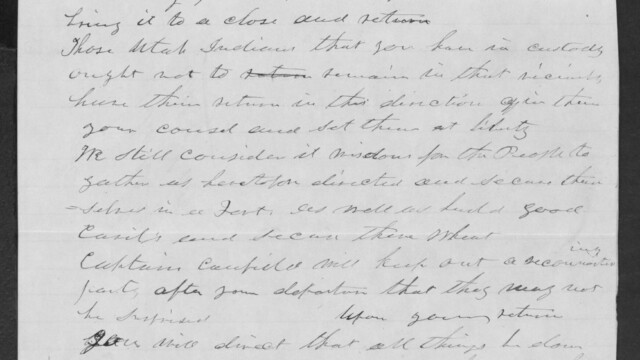 bring it to a close and return
Those Utah Indians that you have in custody
ought not to return remain in that vicinity
have them return in this direction give them
your counsel and set them at liberty
We still consider it wisdom for the People to
gather as heretofore directed and secure them
-selves in a Fort, as well as build good
and secure there Wheat
Captain Canfield will keep out a reconnoitering
party after your departure that they may not
be surprised Upon your return
you will direct that all things be done